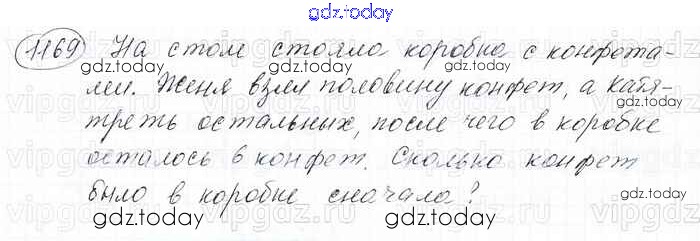 gdz.today
1169 На столе стояла коробка с конфета-
gdz.today gdz.today gdz.today
ми. Женя взял половину конфет, а Катя-
треть остальных, после чего в коробке
gdz.today gdz.today gdz.today
осталось 6 конфет. Сколько конфет
было в коробке сначала?
gdz.today gdz.today